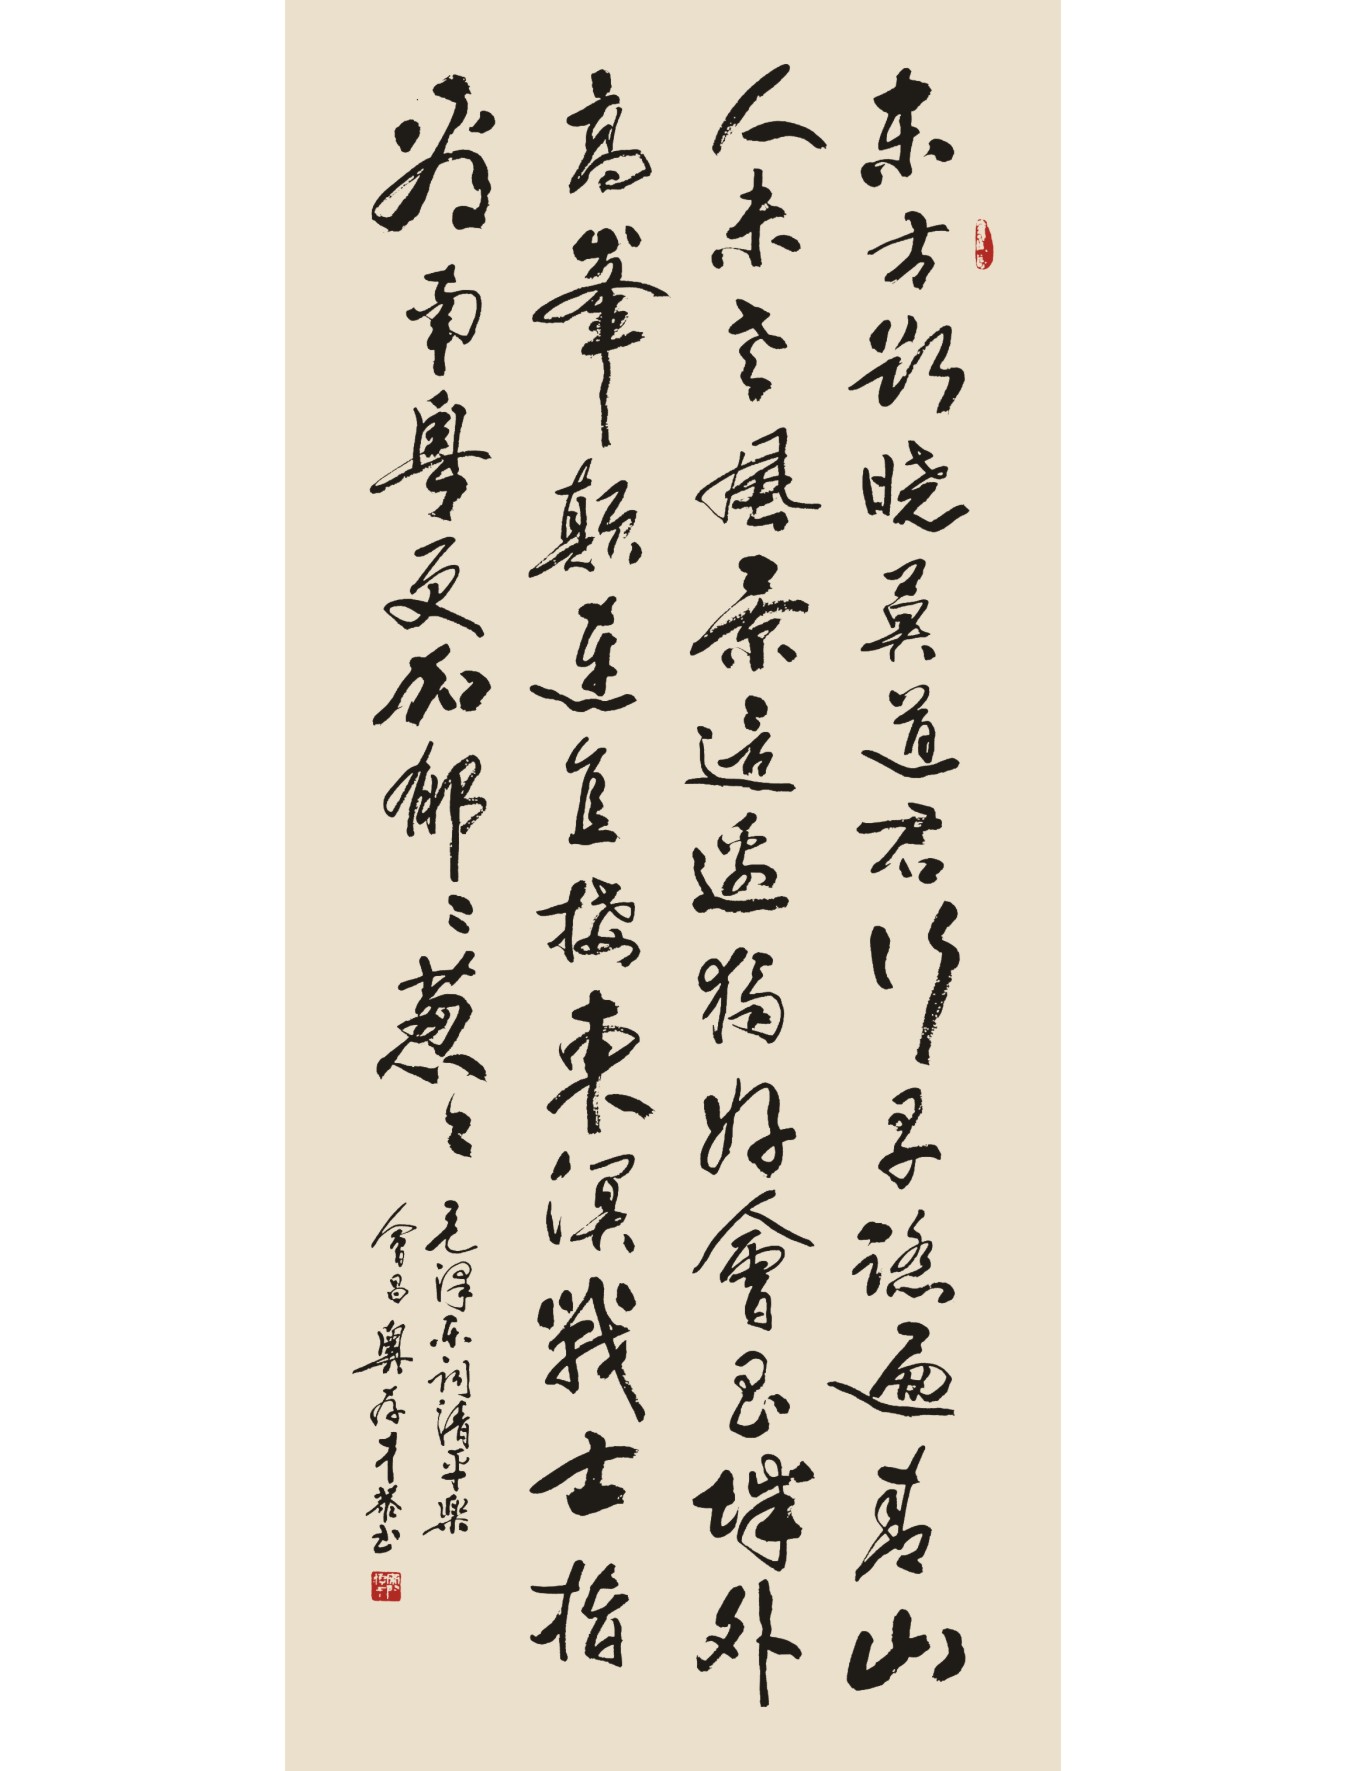 东方欲晓莫道君行早踏遍青山
人未老風景這邊獨好會昌城外
高峯顛連直接東溟戰士指
看南粵更加郁〻葱〻
毛泽东词清平樂
會昌 存才恭书